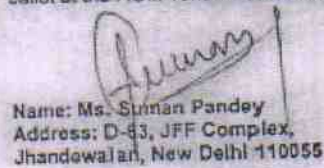 Name: Ms. Suman Pandey
Address: D-63, JFF Complex,
Jhandewalan, New Delhi 110055